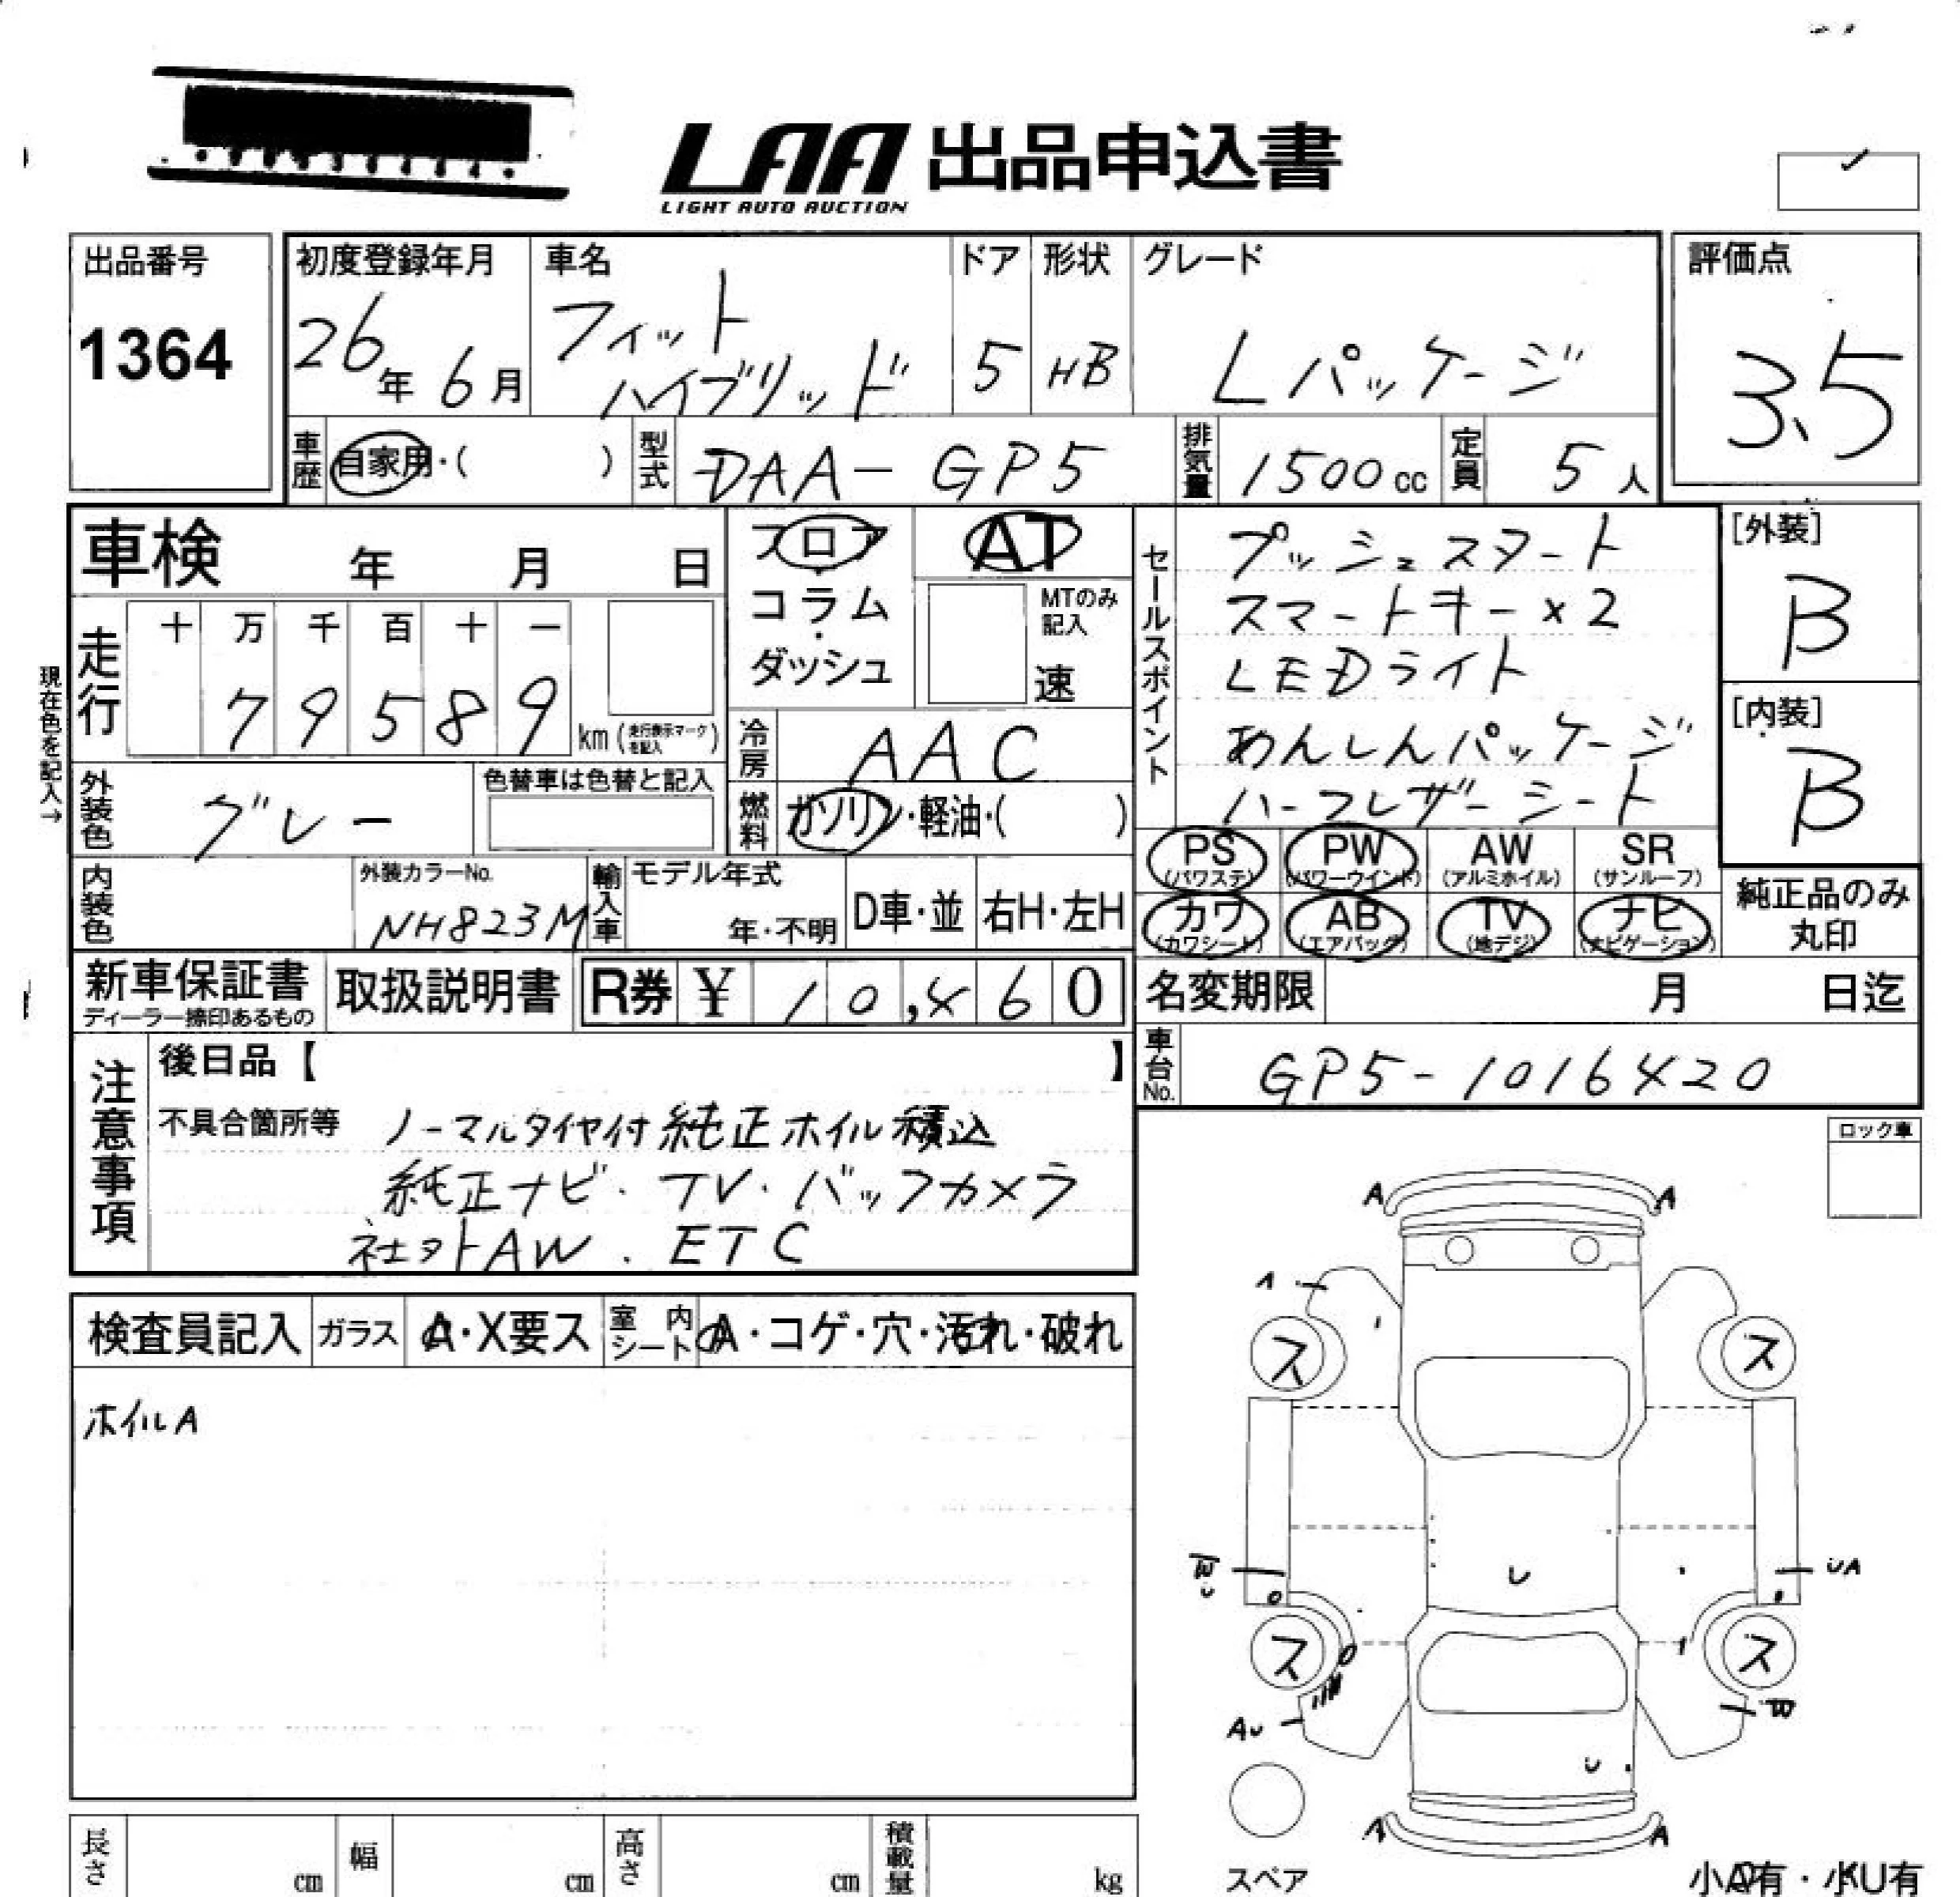 LAA 出品申込書
LIGHT AUTO AUCTION
出品番号
1364
初度登録年月
26年 6月
車名
フィット
ハイブリッド
ドア
5
形状
HB
グレード
Lパッケージ
評価点
3.5
車歴 自家用・( )
型式 DAA-GP5
排気量 1500cc
定員 5人
車検 年 月 日
フロア・コラム・ダッシュ
AT
MTのみ記入
速
セールスポイント
プッシュスタート
スマートキー×2
LEDライト
あんしんパッケージ
ハーフレザーシート
[外装]
B
[内装]
B
現在色を記入→
走行
十 万 千 百 十 一
7 9 5 8 9 km (走行表示マークを記入)
冷房 AAC
外装色 グレー
色替車は色替と記入
燃料 ガソリン・軽油・( )
PS (パワステ)
PW (パワーウインド)
AW (アルミホイル)
SR (サンルーフ)
カワ (カワシート)
AB (エアバッグ)
TV (地デジ)
ナビ (ナビゲーション)
純正品のみ丸印
内装色
外装カラーNo.
NH823M
輸入車
モデル年式
年・不明
D車・並
右H・左H
新車保証書
ディーラー捺印あるもの
取扱説明書
R券 ¥ 10,460
名変期限 月 日迄
車台No. GP5-1016420
注意事項
後日品【 】
不具合箇所等 ノーマルタイヤ付純正ホイル積込
純正ナビ・TV・バックカメラ
社外AW・ETC
ロック車
検査員記入
ガラス A・X要ス
室内シート A・コゲ・穴・汚れ・破れ
ホイルA
A A
A
ス ス
W U
U
UA
ス ス
AU
W
U
A A
スペア
小A有・小U有
長さ cm
幅 cm
高さ cm
積載量 kg